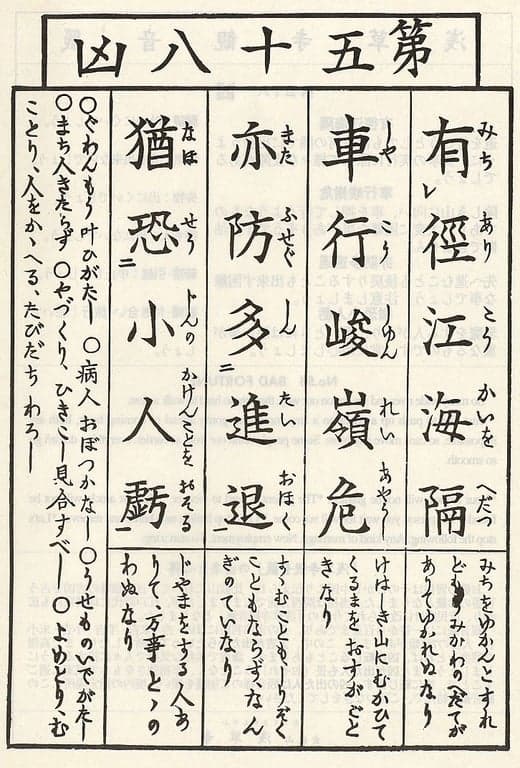 第五十八凶
みち あり こう かいを へだつ
有レ徑江海隔
みちをゆかんとすれ
ども うみかわのへだてが
ありてゆかれぬなり
しや こう しゆん れい あやう
車行峻嶺危
けはしき山にむかひて
くるまをおすがごと
きなり
また ふせぐ しん たい おほく
亦防多二進退一
すゝむこともしりぞく
こともならず、なん
ぎのていなり
なほ せう じんの かけんことを おそる
猶恐二小人虧一
じやまをする人あ
りて、万事とゝの
わぬなり
〇ぐわんもう 叶ひがたし 〇病人 おぼつかなし 〇うせものいでがたし
〇まち人きたらず 〇やづくり、ひきこし見合すべし 〇よめとり、む
ことり、人をかゝへる、たびだち わるし